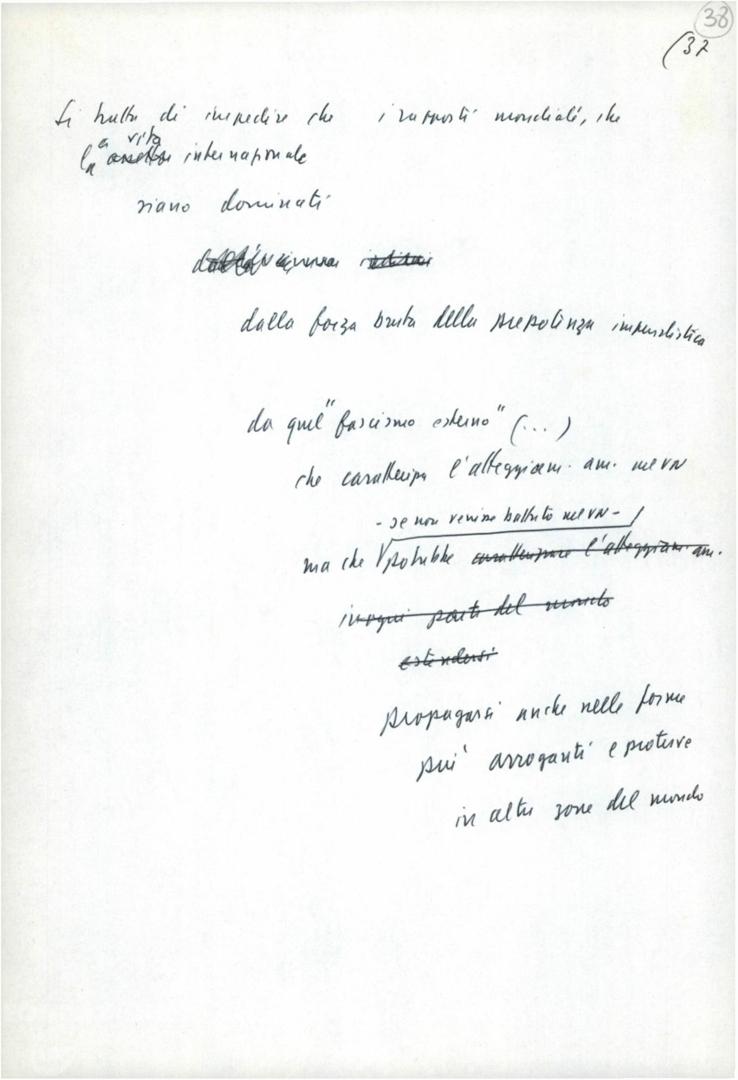 38
(37
Si tratta di impedire che i rapporti mondiali, che
a vita
la assetto internazionale
siano dominati
dalla forza bruta della prepotenza imperialistica
da quel "fascismo esterno" (...)
che caratterizza l'atteggiam. am. nel VN
- se non venisse battuto nel VN -
ma che potrebbe caratterizzare l'atteggiam. am.
in ogni parte del mondo
estendersi
propagarsi anche nelle forme
più arroganti e proterve
in altre zone del mondo